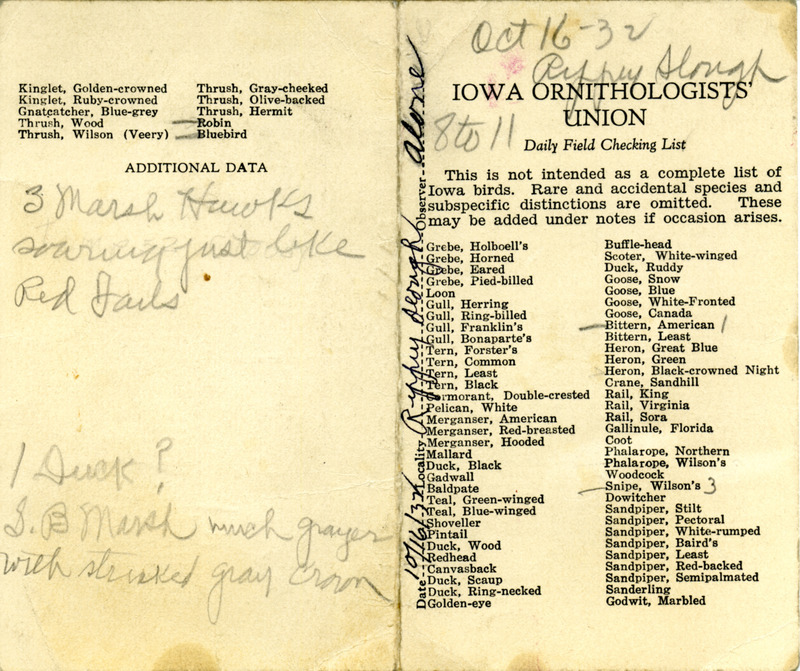 Kinglet, Golden-crowned
Kinglet, Ruby-crowned
Gnatcatcher, Blue-grey
Thrush, Wood
Thrush, Wilson (Veery)
Thrush, Gray-cheeked
Thrush, Olive-backed
Thrush, Hermit
Robin
Bluebird
ADDITIONAL DATA
3 Marsh Hawks
soaring just like
Red Tails
1 Duck ?
S. B Marsh much grayer
with streaked gray crown
Oct 16-32
Rippey Slough
8 to 11
IOWA ORNITHOLOGISTS'
UNION
Daily Field Checking List
This is not intended as a complete list of
Iowa birds. Rare and accidental species and
subspecific distinctions are omitted. These
may be added under notes if occasion arises.
Date 10/16/32 Locality Rippey Slough Observer alone
Grebe, Holboell's
Grebe, Horned
Grebe, Eared
Grebe, Pied-billed
Loon
Gull, Herring
Gull, Ring-billed
Gull, Franklin's
Gull, Bonaparte's
Tern, Forster's
Tern, Common
Tern, Least
Tern, Black
Cormorant, Double-crested
Pelican, White
Merganser, American
Merganser, Red-breasted
Merganser, Hooded
Mallard
Duck, Black
Gadwall
Baldpate
Teal, Green-winged
Teal, Blue-winged
Shoveller
Pintail
Duck, Wood
Redhead
Canvasback
Duck, Scaup
Duck, Ring-necked
Golden-eye
Buffle-head
Scoter, White-winged
Duck, Ruddy
Goose, Snow
Goose, Blue
Goose, White-Fronted
Goose, Canada
Bittern, American 1
Bittern, Least
Heron, Great Blue
Heron, Green
Heron, Black-crowned Night
Crane, Sandhill
Rail, King
Rail, Virginia
Rail, Sora
Gallinule, Florida
Coot
Phalarope, Northern
Phalarope, Wilson's
Woodcock
Snipe, Wilson's 3
Dowitcher
Sandpiper, Stilt
Sandpiper, Pectoral
Sandpiper, White-rumped
Sandpiper, Baird's
Sandpiper, Least
Sandpiper, Red-backed
Sandpiper, Semipalmated
Sanderling
Godwit, Marbled